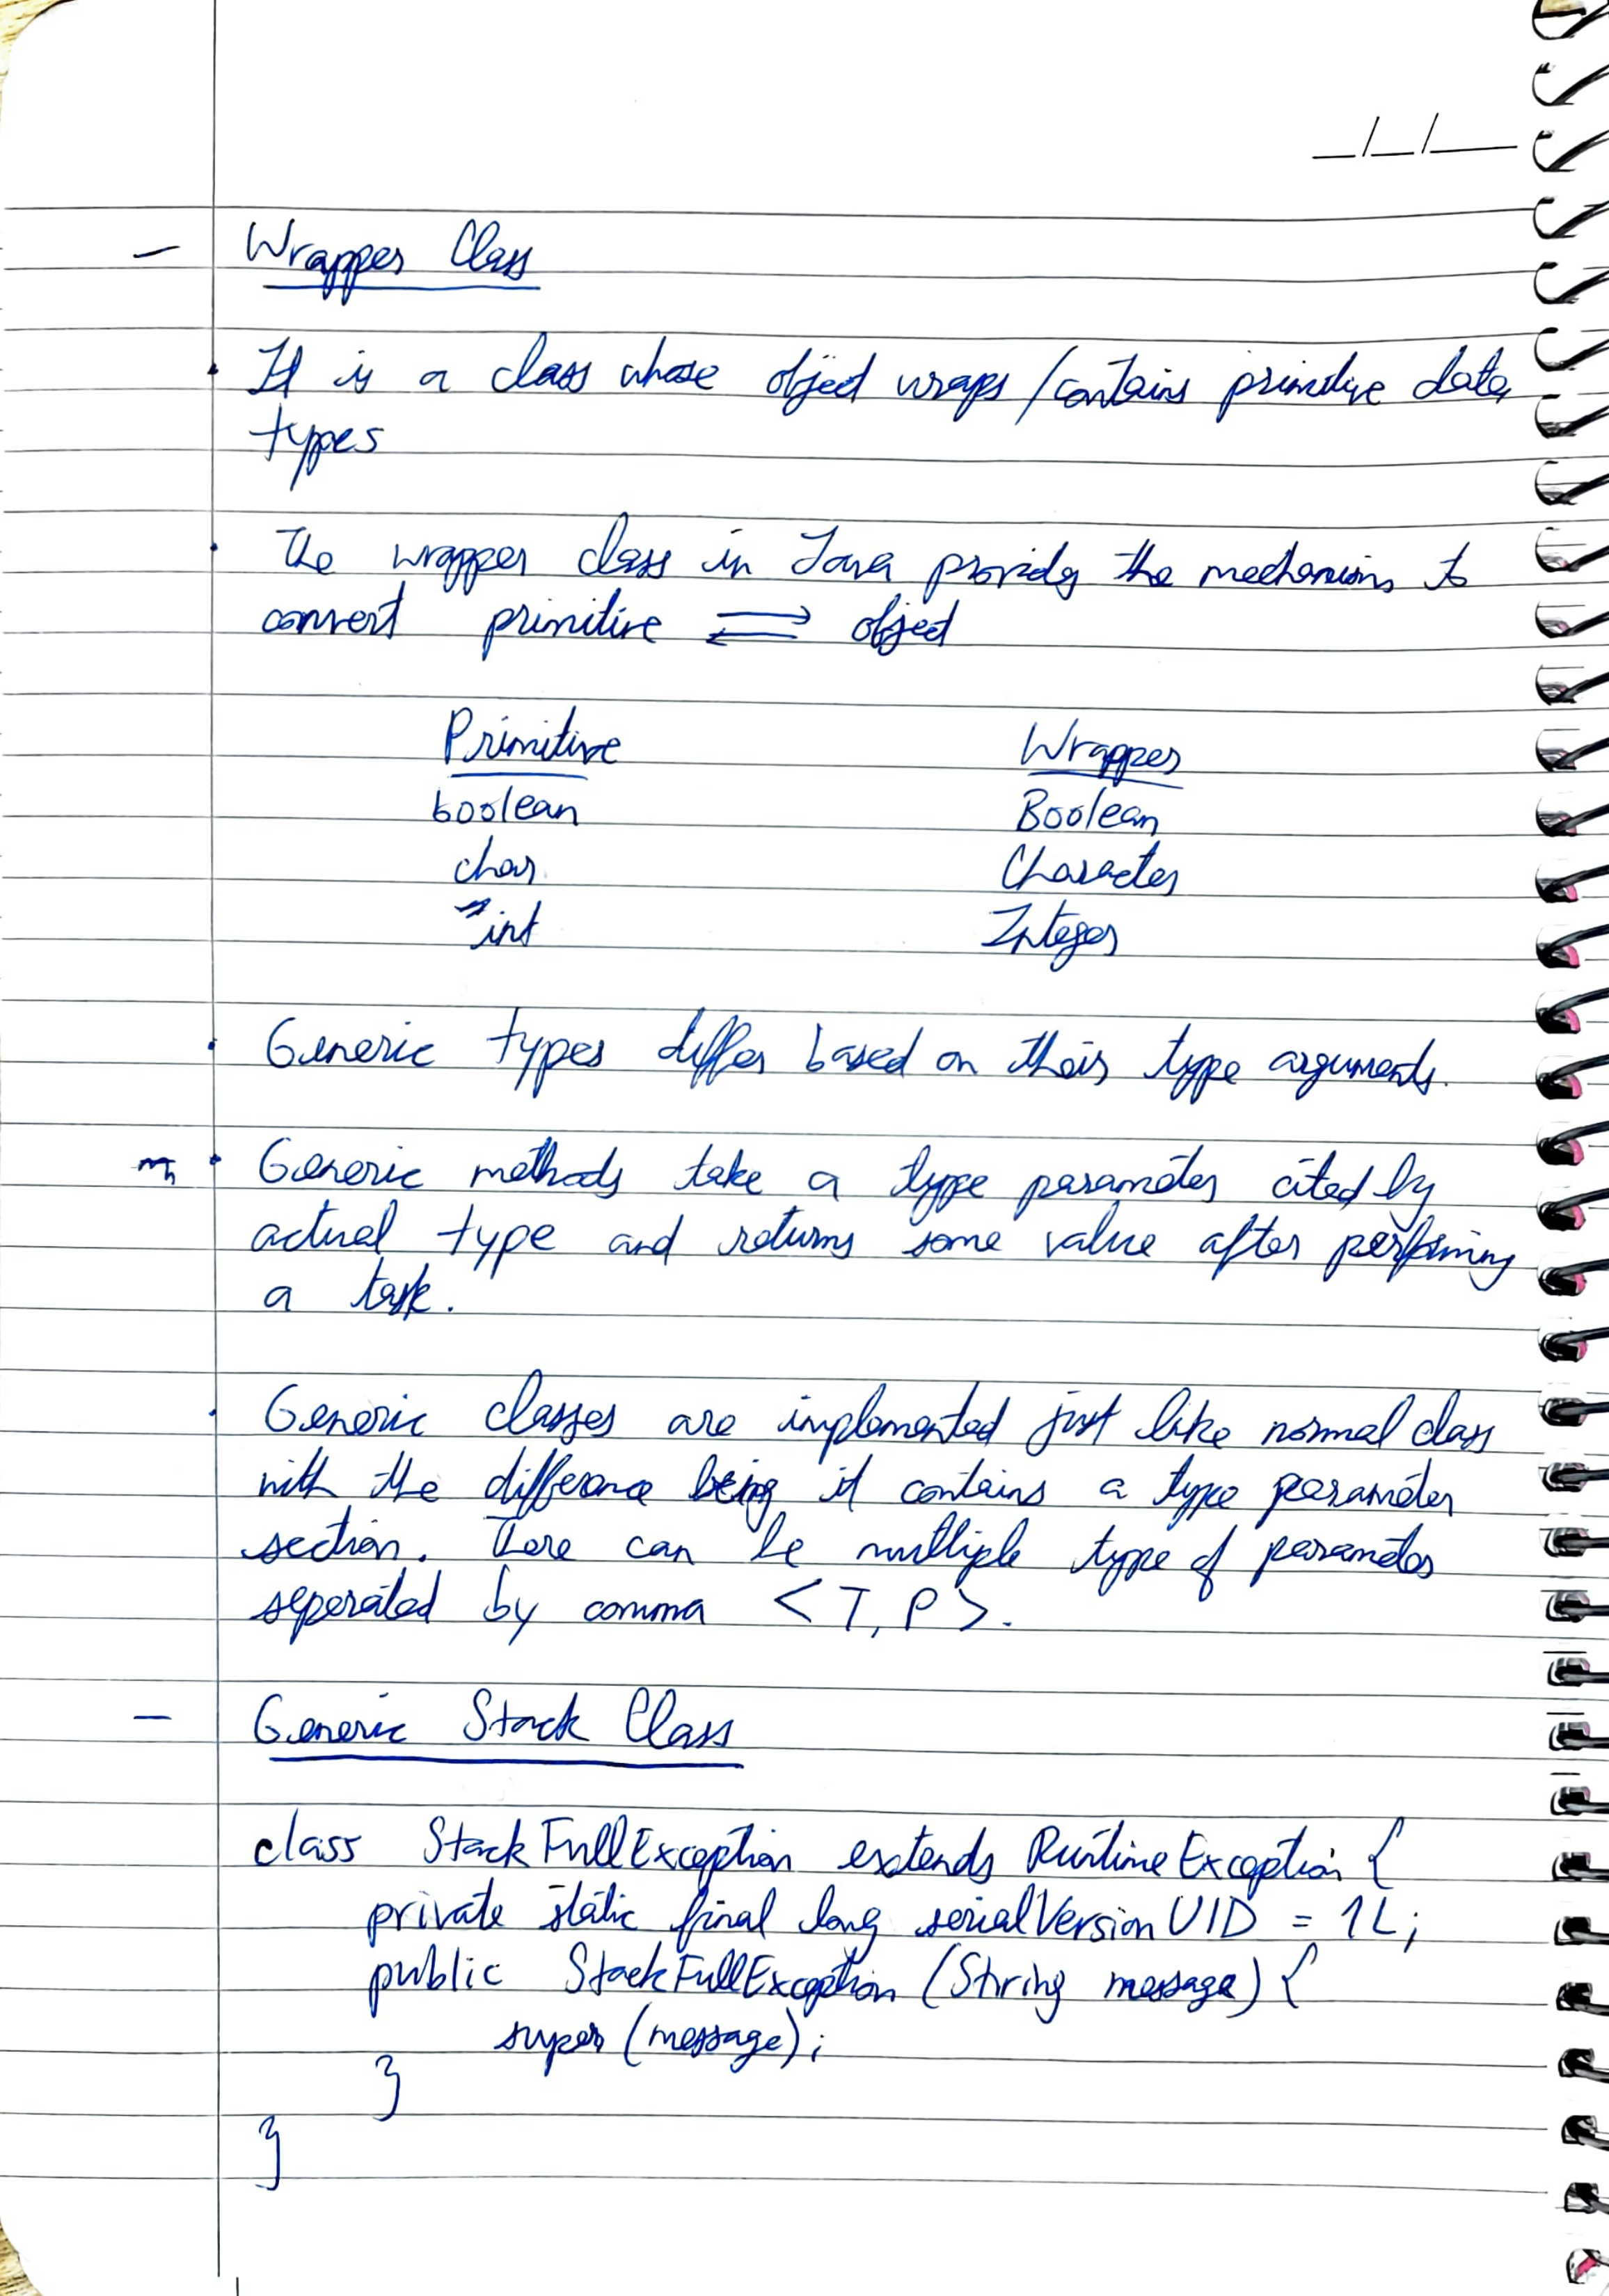 _/_/__
— Wrapper Class
• It is a class whose object wraps / contains primitive data
types
• The wrapper class in Java provides the mechanism to
convert primitive ⇌ object
Primitive Wrapper
boolean Boolean
char Character
int Integer
• Generic types differ based on their type arguments.
• Generic methods take a type parameter cited by
actual type and returns some value after performing
a task.
• Generic classes are implemented just like normal class
with the difference being it contains a type parameter
section. There can be multiple type of parameter
seperated by comma <T, P>.
— Generic Stack Class
class StackFullException extends RuntimeException {
private static final long serialVersionUID = 1L;
public StackFullException (String message) {
super (message);
}
}